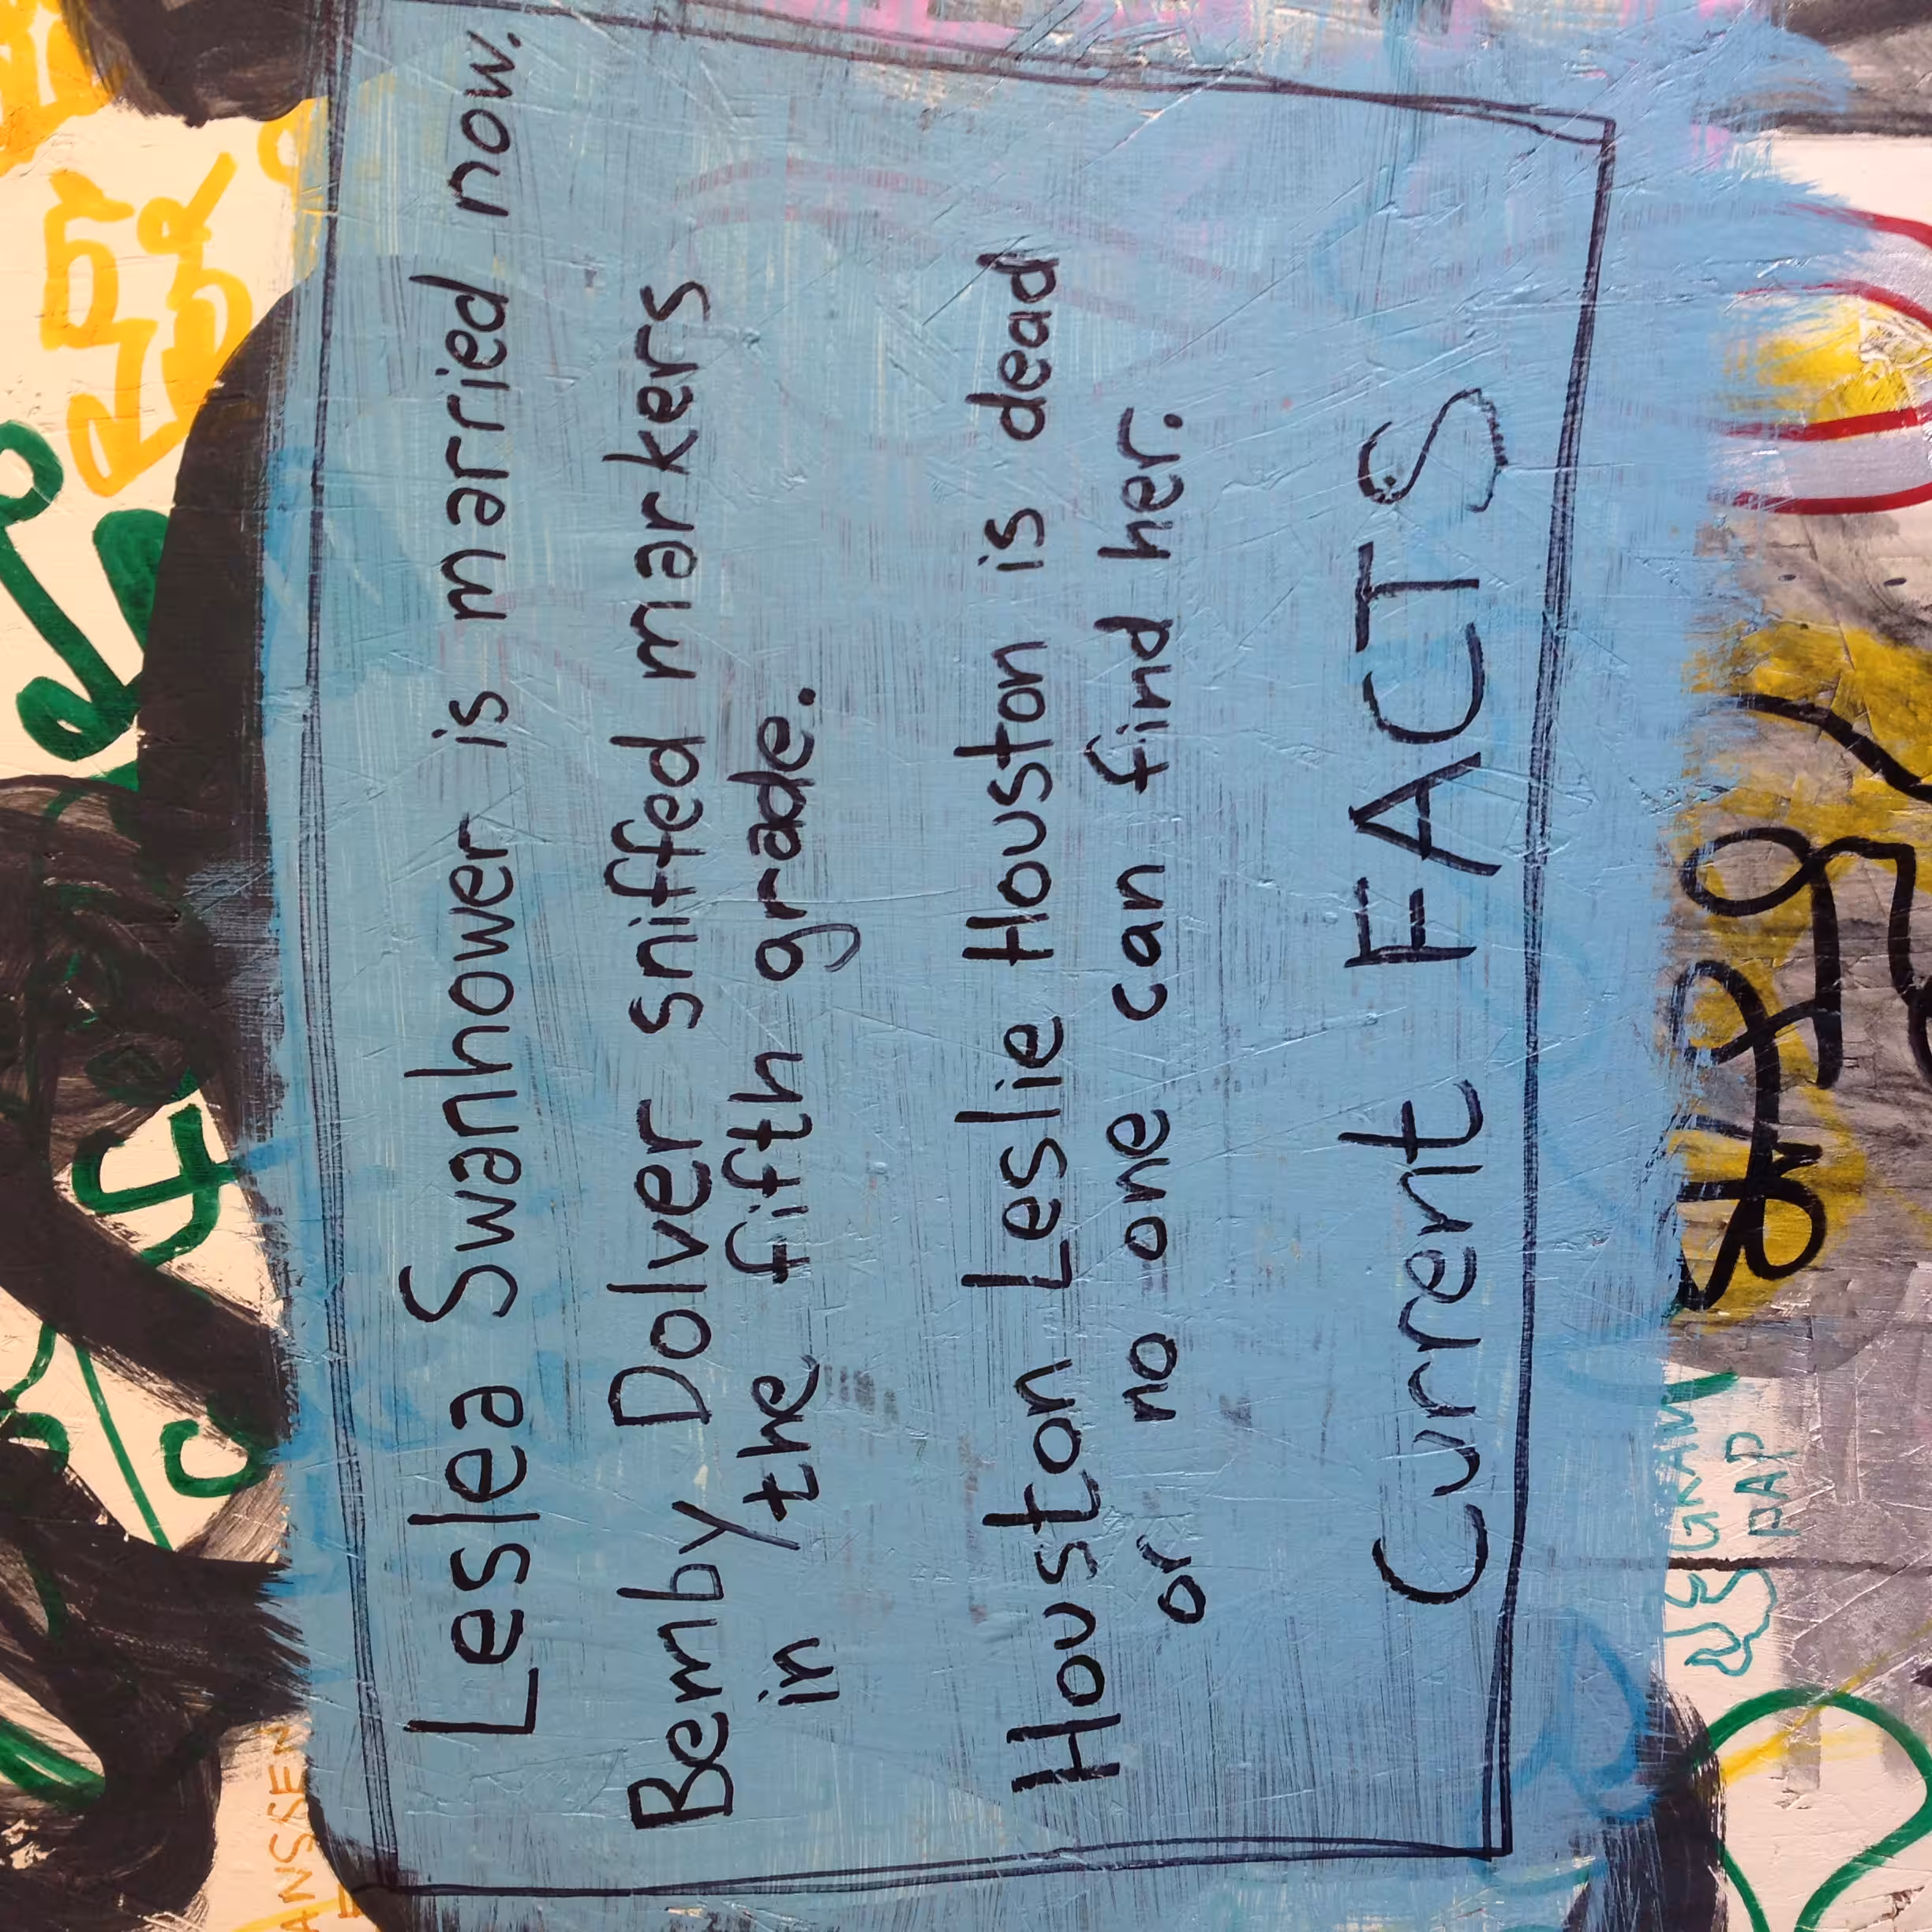 Leslea Swanhower is married now.
Bemby Dolver sniffed markers
in the fifth grade.
Houston Leslie Houston is dead
or no one can find her.
Current FACTS
NEGRAW
PAP
ANSSEN